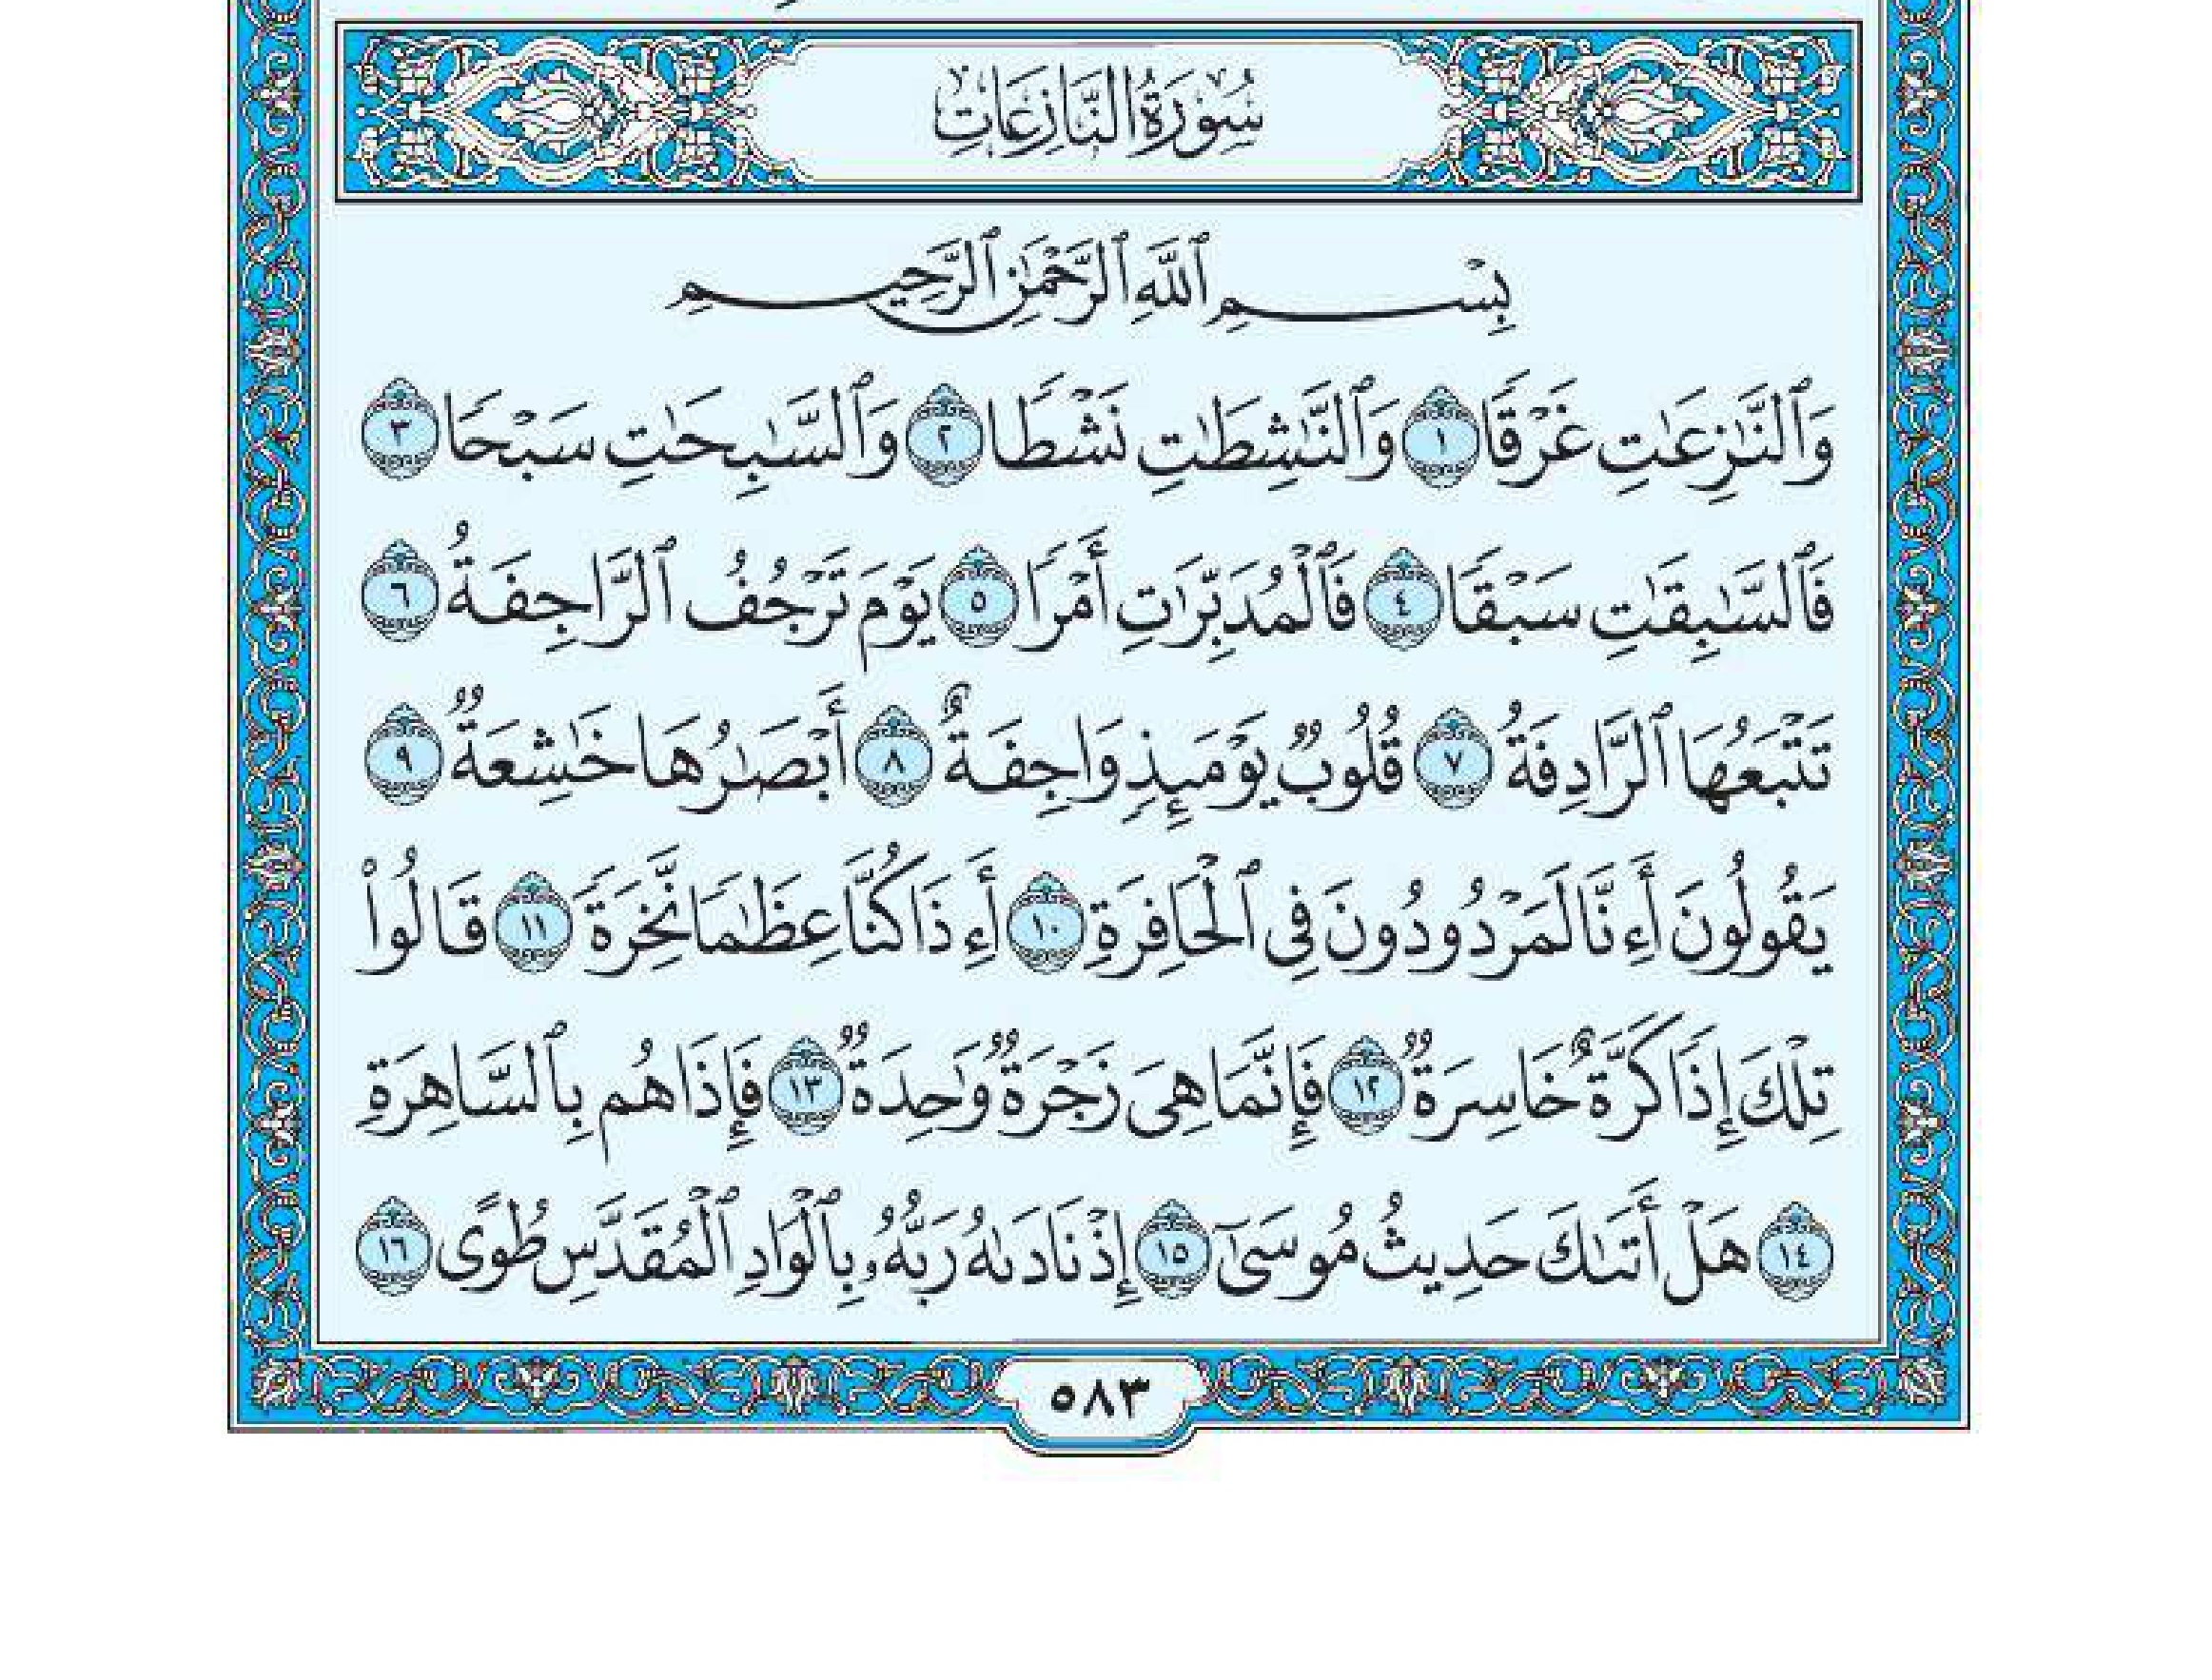 سُورَةُ النَّازِعَاتِ
بِسْمِ ٱللَّهِ ٱلرَّحْمَٰنِ ٱلرَّحِيمِ
وَٱلنَّٰزِعَٰتِ غَرْقٗا ١ وَٱلنَّٰشِطَٰتِ نَشْطٗا ٢ وَٱلسَّٰبِحَٰتِ سَبْحٗا ٣
فَٱلسَّٰبِقَٰتِ سَبْقٗا ٤ فَٱلْمُدَبِّرَٰتِ أَمْرٗا ٥ يَوْمَ تَرْجُفُ ٱلرَّاجِفَةُ ٦
تَتْبَعُهَا ٱلرَّادِفَةُ ٧ قُلُوبٞ يَوْمَئِذٖ وَاجِفَةٌ ٨ أَبْصَٰرُهَا خَٰشِعَةٞ ٩
يَقُولُونَ أَءِنَّا لَمَرْدُودُونَ فِي ٱلْحَافِرَةِ ١٠ أَءِذَا كُنَّا عِظَٰمٗا نَّخِرَةٗ ١١ قَالُوا۟
تِلْكَ إِذٗا كَرَّةٌ خَاسِرَةٞ ١٢ فَإِنَّمَا هِيَ زَجْرَةٞ وَٰحِدَةٞ ١٣ فَإِذَا هُم بِٱلسَّاهِرَةِ
١٤ هَلْ أَتَىٰكَ حَدِيثُ مُوسَىٰٓ ١٥ إِذْ نَادَىٰهُ رَبُّهُۥ بِٱلْوَادِ ٱلْمُقَدَّسِ طُوًى ١٦
٥٨٣